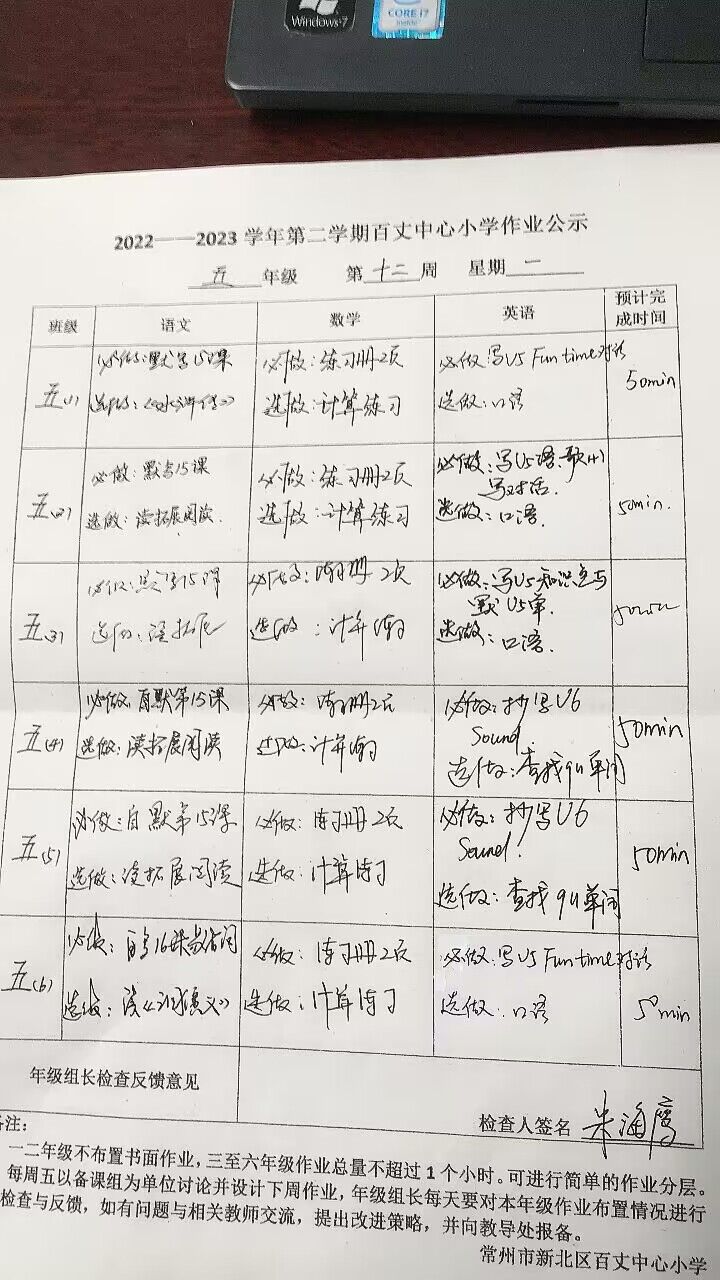 Windows 7
CORE i7
2022——2023 学年第二学期百丈中心小学作业公示
五 年级 第 十二 周 星期 二
班级 语文 数学 英语 预计完成时间
五(1)
必做:默写15课
选做:《水浒传》
必做:练习册2页
选做:计算练习
必做:写U5 Fun time对话
选做:口语
50min
五(2)
必做:默写15课
选做:读拓展阅读.
必做:练习册2页
选做:计算练习
必做:写U5语、歌
写对话.
选做:口语.
50min.
五(3)
必做:默写15课
选做:读拓展
必做:练习册 2页
选做:计算练习
必做:写U5知识点与
默U5单.
选做:口语.
50min
五(4)
必做:自默第15课
选做:读拓展阅读
必做:练习册2页
选做:计算练习
必做:抄写U6
Sound.
选做:查找9U单词
50min
五(5)
必做:自默第15课
选做:读拓展阅读
必做:练习册2页
选做:计算练习
必做:抄写U6
Sound.
选做:查找9U单词
50min
五(6)
必做:自写16课
选做:读《
必做:练习册2页
选做:计算练习
必做:写U5 Fun time对话
选做:口语
50min
年级组长检查反馈意见
检查人签名 朱海
备注:
一二年级不布置书面作业,三至六年级作业总量不超过1个小时。可进行简单的作业分层。
每周五以备课组为单位讨论并设计下周作业,年级组长每天要对本年级作业布置情况进行
检查与反馈,如有问题与相关教师交流,提出改进策略,并向教导处报备。
常州市新北区百丈中心小学